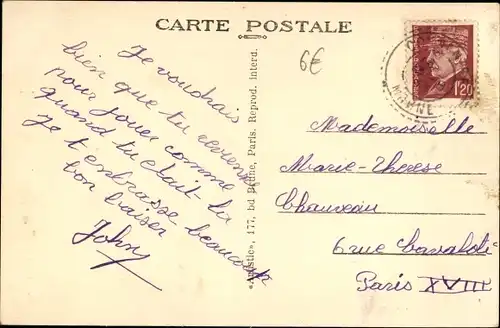 CARTE POSTALE
6€
Je voudrais
bien que tu revienne
pour jouer comme
quand tu était là
Je t'embrasse beaucoup
bon baiser
Johny
«Artistic», 177, bd Brune, Paris. Reprod. interd.
1f20
MARNE
Mademoiselle
Marie-Therese
Chauveau
6 rue Cavaloti
Paris XVIII